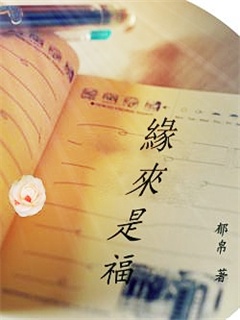 緣來是福
郁帛 著